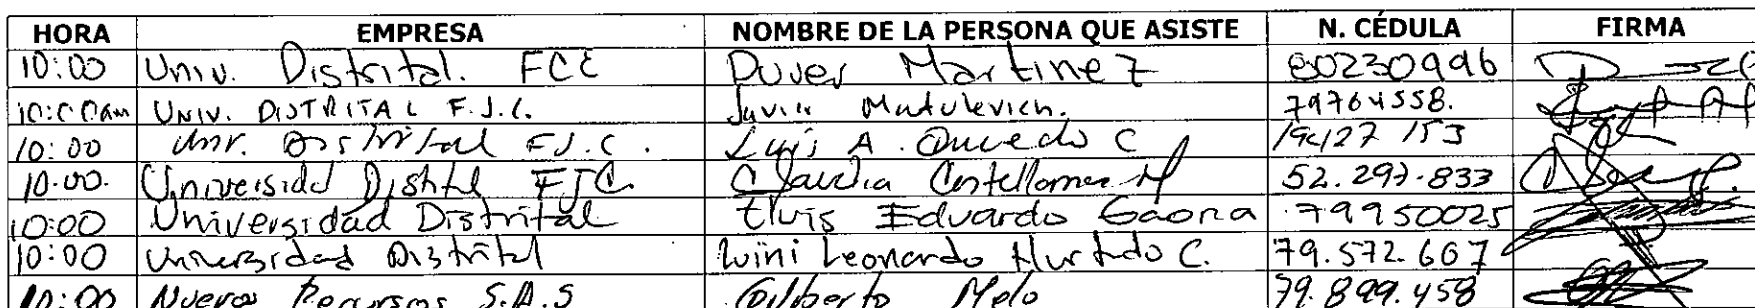 HORA EMPRESA NOMBRE DE LA PERSONA QUE ASISTE N. CÉDULA FIRMA
10:00 Univ. Distrital. FCE Duver Martinez 80230996
10:00am UNIV. DISTRITAL F.J.C. Javier Matulevich. 79764558.
10:00 Univ. Distrital F.J.C. Luis A. Quevedo C 19427153
10:00. Universidad Distrital FJC. Claudia Castellanos M 52.297.833
10:00 Universidad Distrital Elvis Eduardo Gaona 79950025
10:00 Universidad Distrital Wini Leonardo Hurtado C. 79.572.607
10:00 Nuevos Recursos S.A.S Gilberto Melo 79.899.458